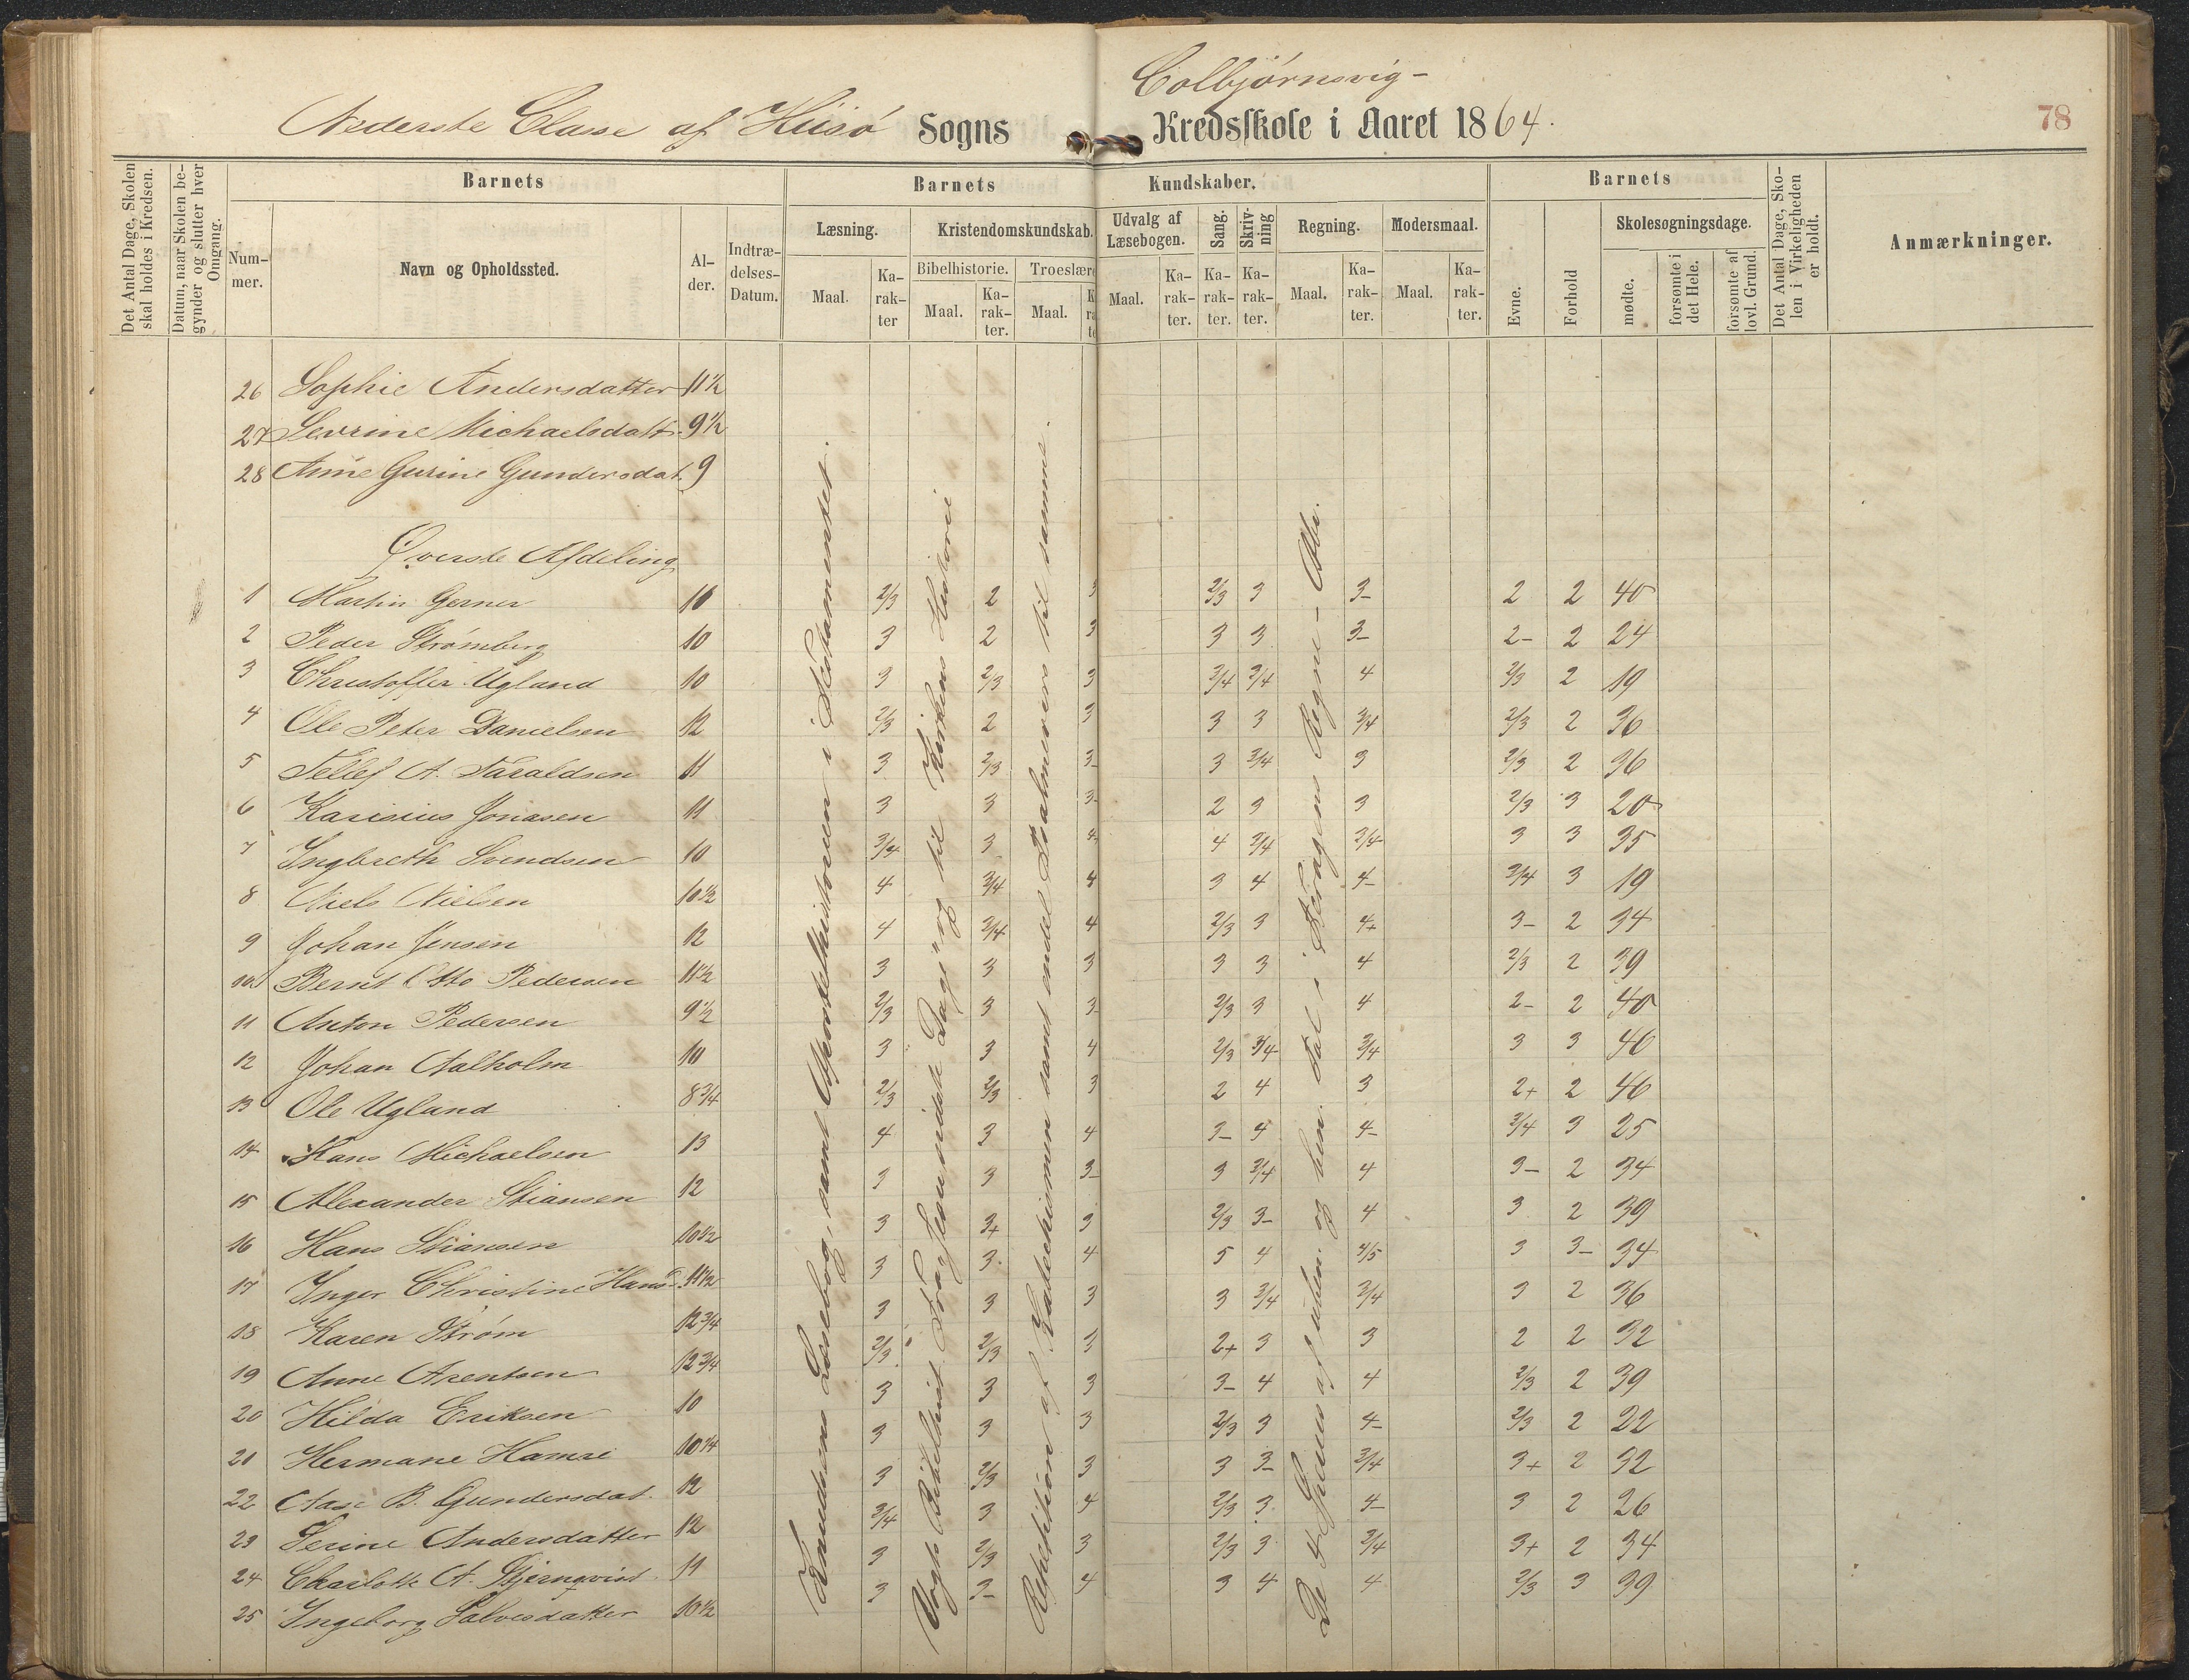 Colbjørnsvig-
Nederste Classe af Hiisø Sogns Kredsskole i Aaret 1864.
78
Det Antal Dage, Skolen skal holdes i Kredsen.
Datum, naar Skolen begynder og slutter hver Omgang.
Barnets
Nummer.
Navn og Opholdssted.
Alder.
Indtrædelses-Datum.
Barnets Kundskaber.
Læsning. Maal. Karakter
Kristendomskundskab.
Bibelhistorie. Maal. Karakter.
Troeslære Maal.
Udvalg af Læsebogen. Maal. Karakter.
Sang. Karakter.
Skrivning Karakter.
Regning. Maal. Karakter.
Modersmaal. Maal. Karakter.
Barnets
Evne.
Forhold
Skolesøgningsdage.
mødte.
forsømte i det Hele.
forsømte af lovl. Grund.
Det Antal Dage, Skolen i Virkeligheden er holdt.
Anmærkninger.
26 Sophie Andersdatter 11½
27 Sevrine Michaelsdatt. 9½
28 Anne Gurine Gundersdat. 9
Øverste Afdeling
1 Martin Gerner 10 2/3 2 3 2/3 3 3- 2 2 40
2 Peder Strømberg 10 3 2 3 3 3 3- 2- 2 24
3 Christoffer Ugland 10 3 2/3 3 3/4 3/4 4 2/3 2 19
4 Ole Peter Danielsen 12 2/3 2 3 3 3 3/4 2/3 2 36
5 Tellef A. Taraldsen 11 3 2/3 3- 3 3/4 3 2/3 2 36
6 Karisius Jonasen 11 3 3 3- 2 3 3 2/3 3 20
7 Ingbreth Svendsen 10 3/4 3 4 4 3/4 3/4 3 3 35
8 Niels Nielsen 10½ 4 3/4 4 3 4 4- 3/4 3 19
9 Johan Jensen 12 4 3/4 4 2/3 3 4+ 3- 2 34
10 Bernt Otto Pedersen 11½ 3 3 3 3 3 4 2/3 2 39
11 Anton Pedersen 9½ 2/3 3 3- 2/3 3 4 2- 2 40
12 Johan Aalholm 10 3 3 4 2/3 3/4 3/4 3 3 40
13 Ole Ugland 8¾ 2/3 2/3 3 2 4 3 2+ 2 40
14 Hans Michaelsen 13 4 3 4 3- 4 4- 3/4 3 25
15 Alexander Stiansen 12 3 3 3- 3 3/4 4 3- 2 34
16 Hans Stiansen 10½ 3 3+ 3 2/3 3- 4 3 2 39
17 Inger Christine Hansd. 11½ 3 3. 4 5 4 4/5 3 3- 34
18 Karen Strøm 12¾ 3 3 3 3 3/4 3/4 3 2 36
19 Anne Arentsen 12¾ 2/3 2/3 3 2+ 3 3 2 2 32
20 Hilda Eriksen 10 3 3 3 3- 4 4 2/3 2 39
21 Hermane Hamre 10¼ 3 3 3 2/3 3 4- 2/3 2 22
22 Aase B. Gundersdat. 12 3 2/3 3 3 3- 3/4 3+ 2 32
23 Serine Andersdatter 12 3/4 3 4 2/3 3. 4- 3 2 26
24 Charlotte A. Stjernqvist 11 3 2/3 3 2/3 3 3/4 3+ 2 34
25 Ingeborg Salvesdatter 10½ 3 3- 4 3 4 4 2/3 3 39
Knudsens Læsebog, samt Apostelhistorien i Testamentet.
Vogts Bibelhist. fra "Jesu sidste Dage" og til Kirkens Historie
Repetition af Katechismen samt endel Psalmevers til samme.
De 4 Species af ubn. og ben. Tal i Kragens Regne-Abc.